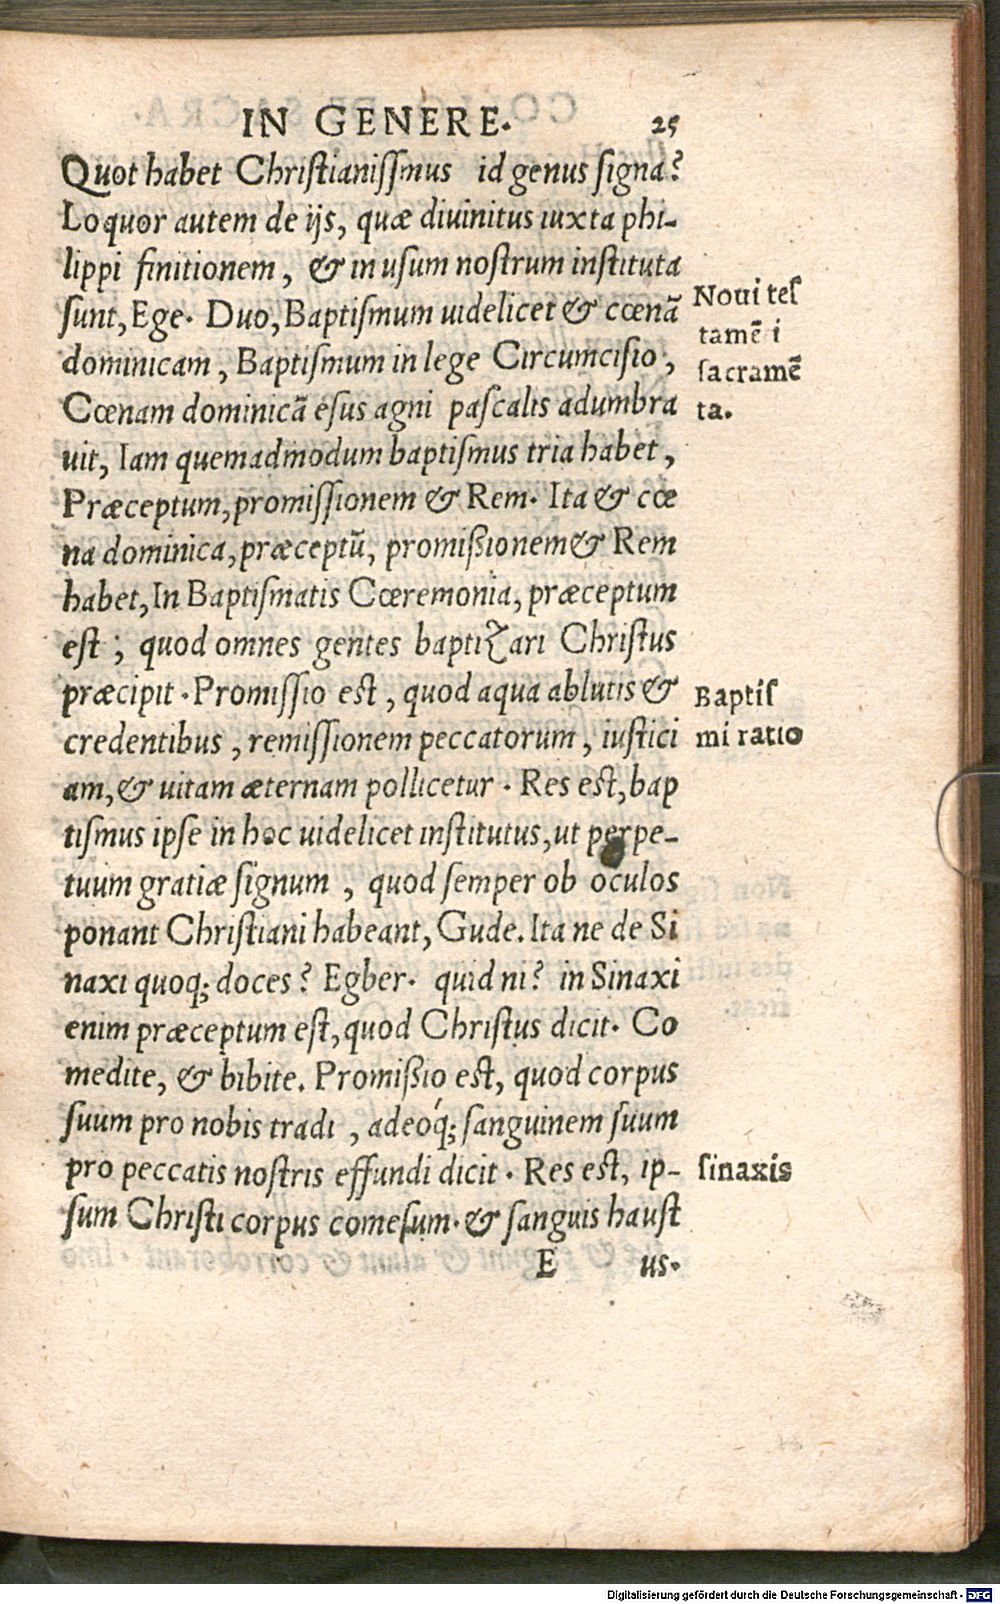 IN GENERE. 25
Quot habet Christianissmus id genus signa?
Loquor autem de ijs, quæ diuinitus iuxta phi-
lippi finitionem, & in usum nostrum instituta
sunt, Ege. Duo, Baptismum uidelicet & cœnā
dominicam, Baptismum in lege Circumcisio,
Cœnam dominicā esus agni pascalis adumbra
uit, Iam quemadmodum baptismus tria habet,
Præceptum, promissionem & Rem. Ita & cœ
na dominica, præceptū, promißionem & Rem
habet, In Baptismatis Cœremonia, præceptum
est; quod omnes gentes baptizari Christus
præcipit. Promissio est, quod aqua ablutis &
credentibus, remissionem peccatorum, iustici
am, & uitam æternam pollicetur. Res est, bap
tismus ipse in hoc uidelicet institutus, ut perpe-
tuum gratiæ signum, quod semper ob oculos
ponant Christiani habeant, Gude. Ita ne de Si
naxi quoq; doces? Egber. quid ni? in Sinaxi
enim præceptum est, quod Christus dicit. Co
medite, & bibite. Promißio est, quod corpus
suum pro nobis tradi, adeoq́; sanguinem suum
pro peccatis nostris effundi dicit. Res est, ip-
sum Christi corpus comesum. & sanguis haust
E us.
Noui tes
tamē i
sacramē
ta.
Baptis
mi ratio
sinaxis
Digitalisierung gefördert durch die Deutsche Forschungsgemeinschaft - DFG